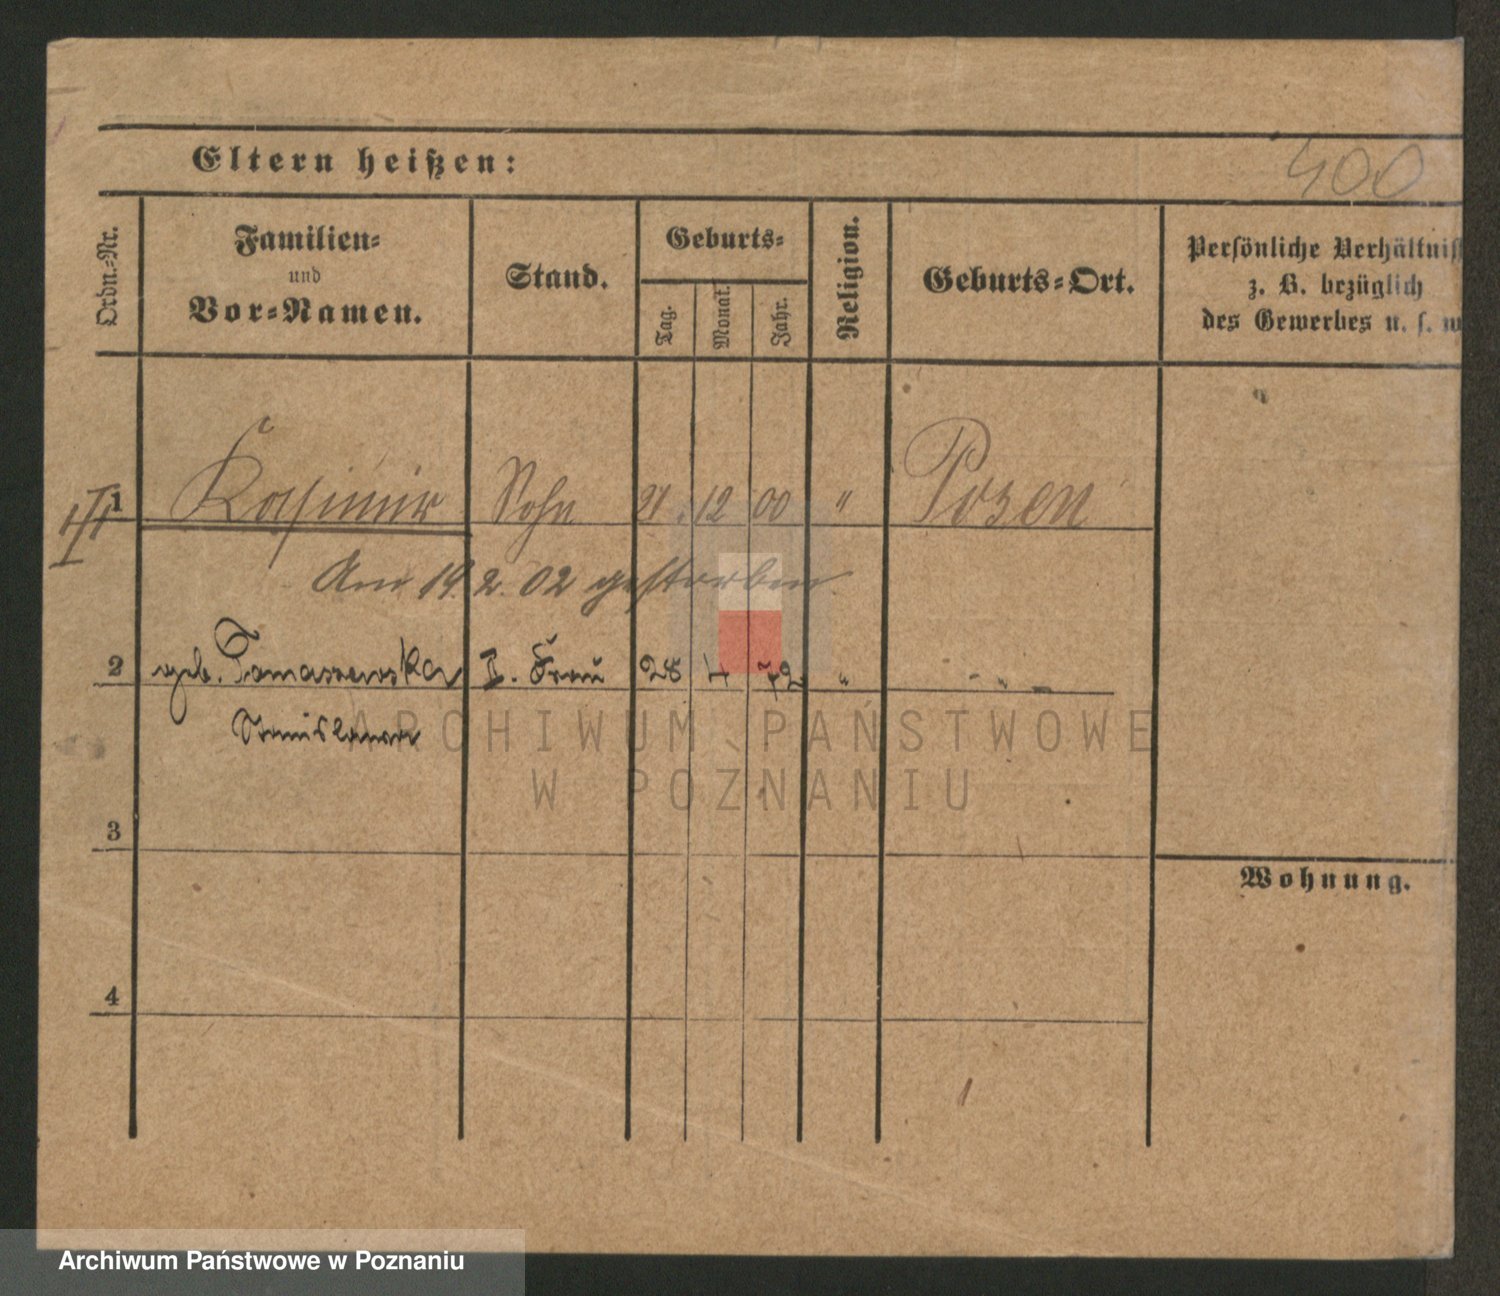 Eltern heißen:
400
Ordn.-Nr.
Familien-
und
Vor-Namen.
Stand.
Geburts-
Tag.
Monat.
Jahr.
Religion.
Geburts-Ort.
Persönliche Verhältnis
z. B. bezüglich
des Gewerbes u. s. w
III
1 Kasimir Sohn 21. 12 00 " Posen
Am 14. 2. 02 gestorben
2 geb. Tomaszewska II. Frau 28 4 72 " - " -
Stanislawa
ARCHIWUM PAŃSTWOWE
W POZNANIU
3
Wohnung.
4
Archiwum Państwowe w Poznaniu